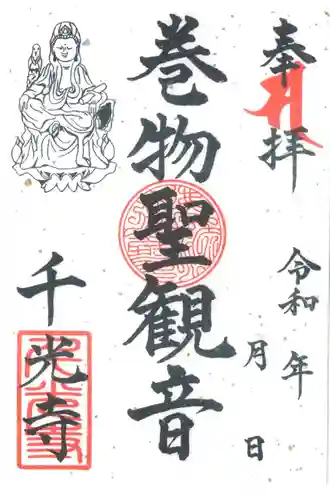 奉拝
令和 年 月 日
巻物聖観音
千光寺